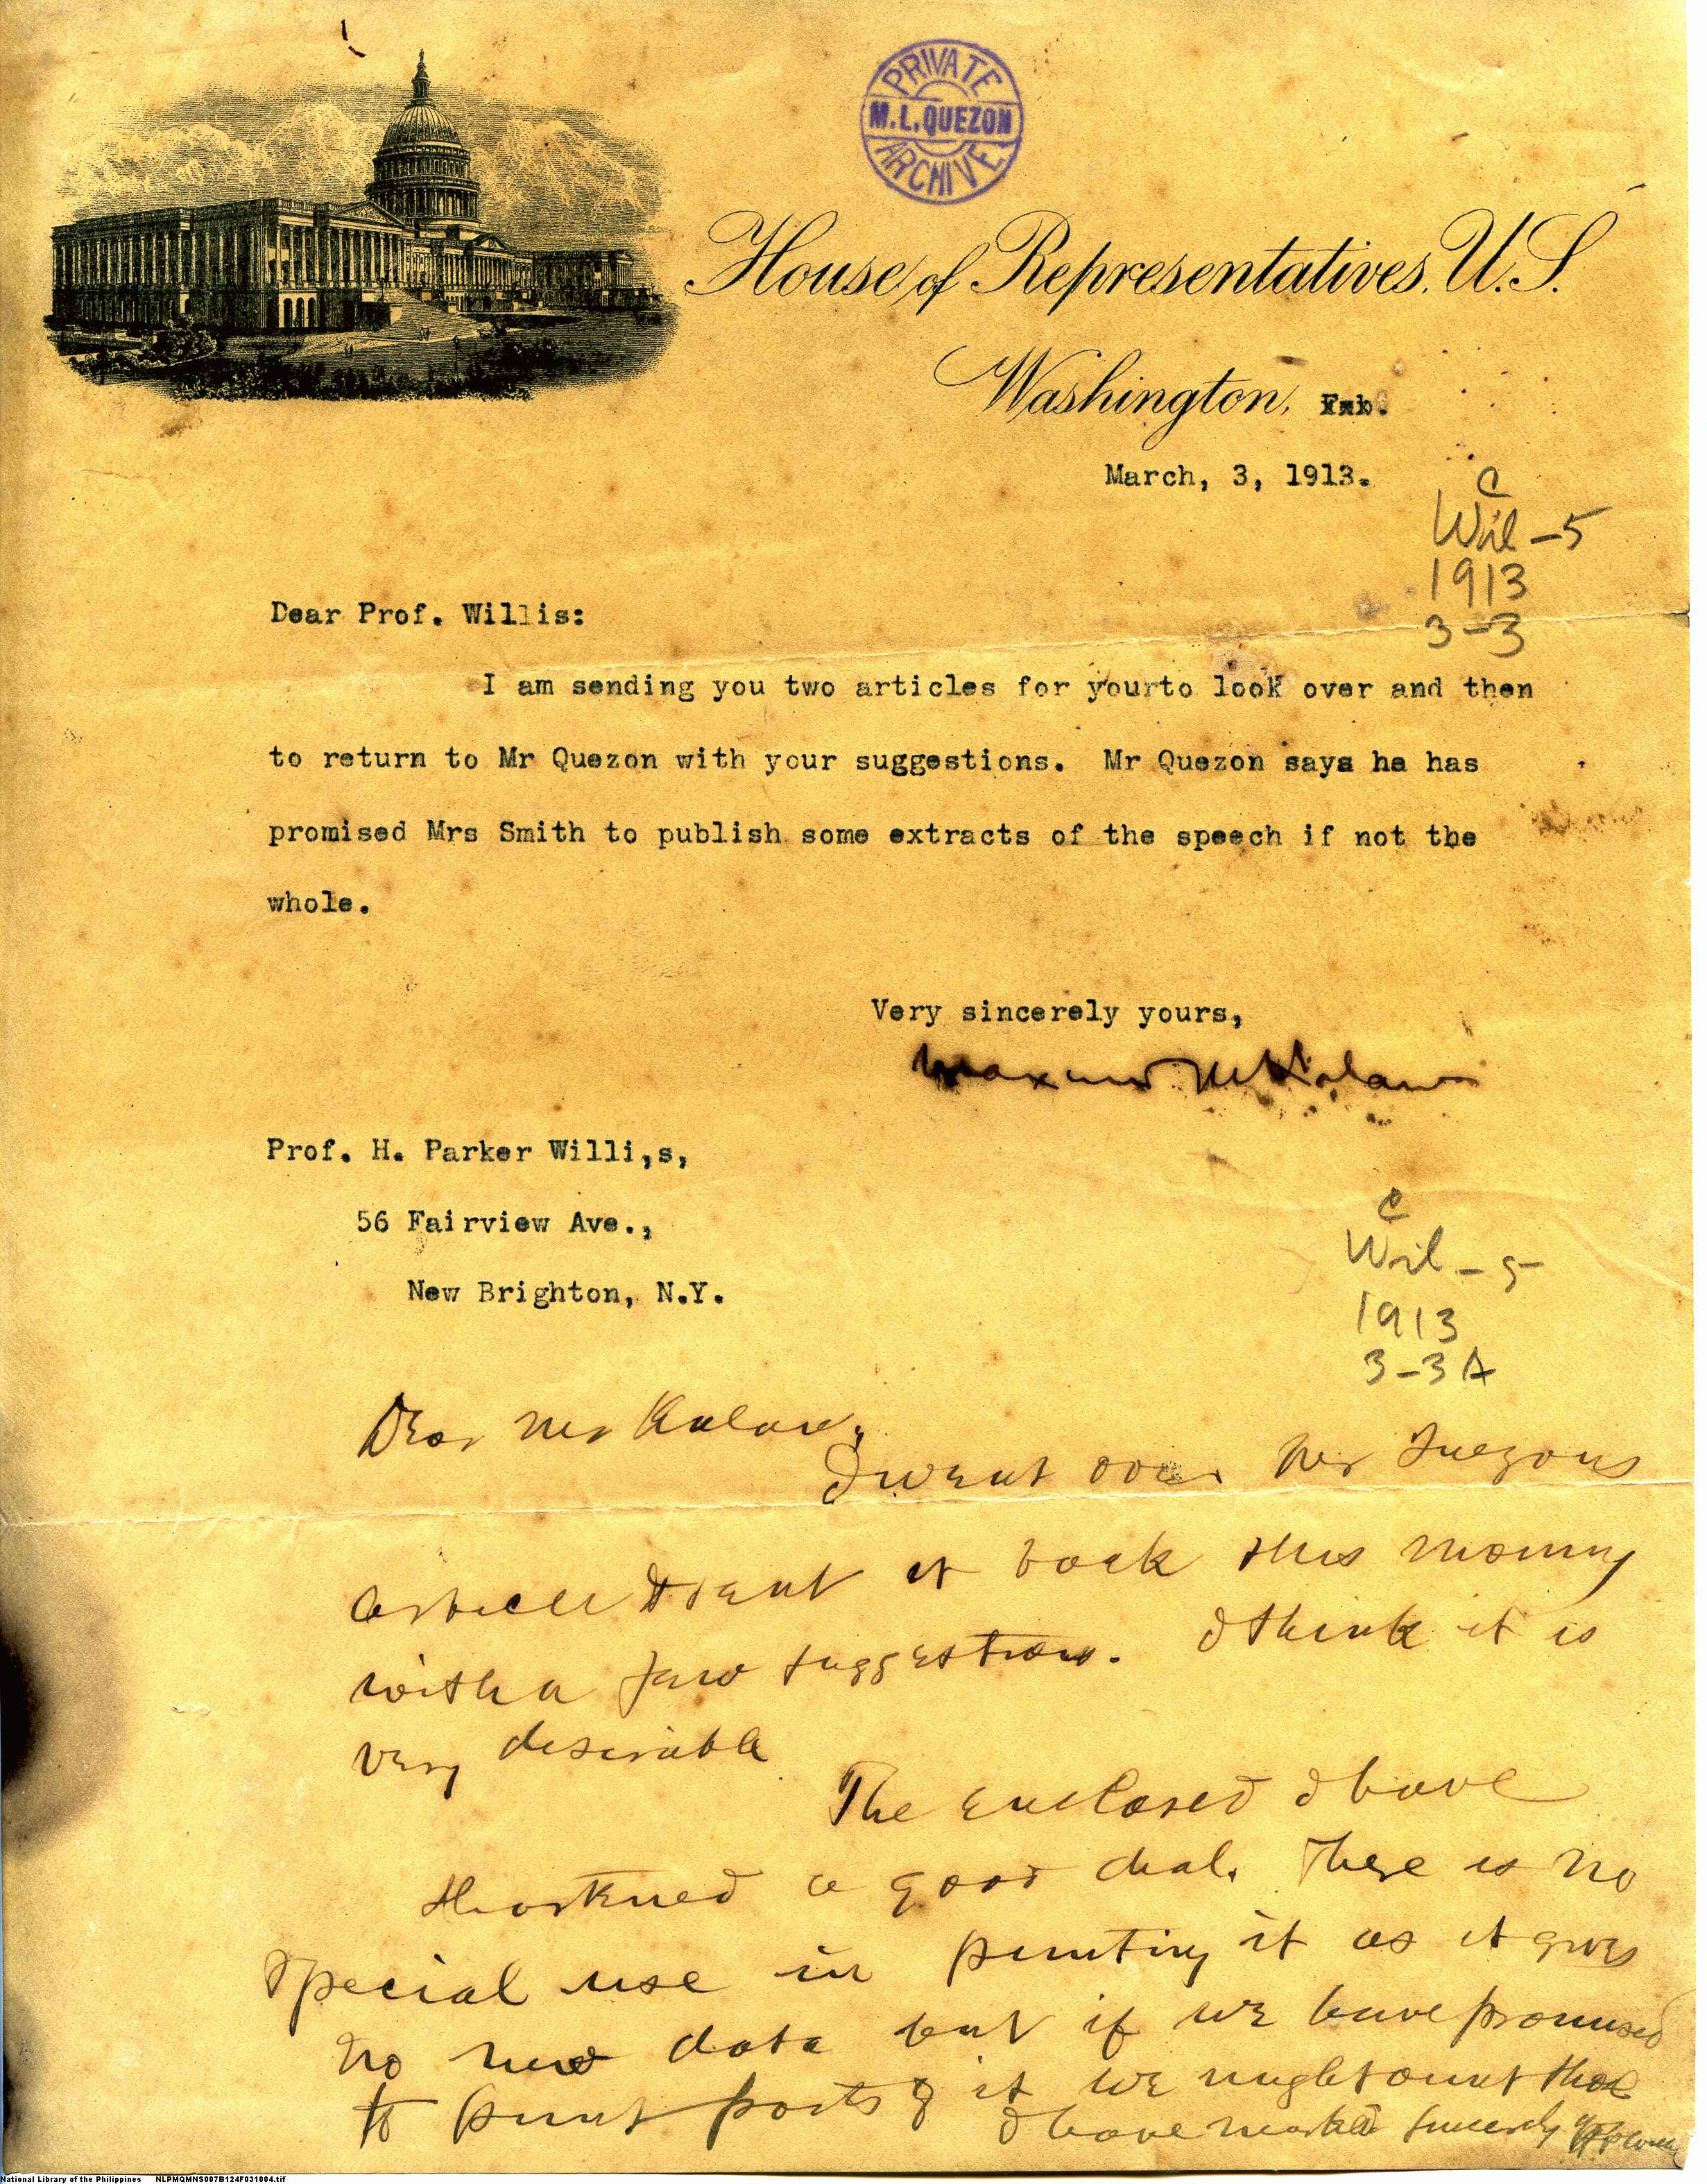 PRIVATE
M.L.QUEZON
ARCHIVE
House of Representatives, U.S.
Washington, Feb.
March, 3, 1913.
C
Wil-5
1913
3-3
Dear Prof. Willis:
I am sending you two articles for yourto look over and then
to return to Mr Quezon with your suggestions. Mr Quezon says he has
promised Mrs Smith to publish some extracts of the speech if not the
whole.
Very sincerely yours,
Maximo M Kalaw
Prof. H. Parker Willi,s,
56 Fairview Ave.,
New Brighton, N.Y.
C
Wil-5
1913
3-3A
Dear Mr Kalaw,
I went over Mr Quezons
article & sent it back this morning
with a few suggestions. I think it is
very desirable
The enclosed I have
shortened a good deal. There is no
special use in printing it as it gives
no new data but if we have promised
to print parts of it we might omit those
I have marked Sincerely
National Library of the Philippines NLPMQMNS007B124F031004.tif